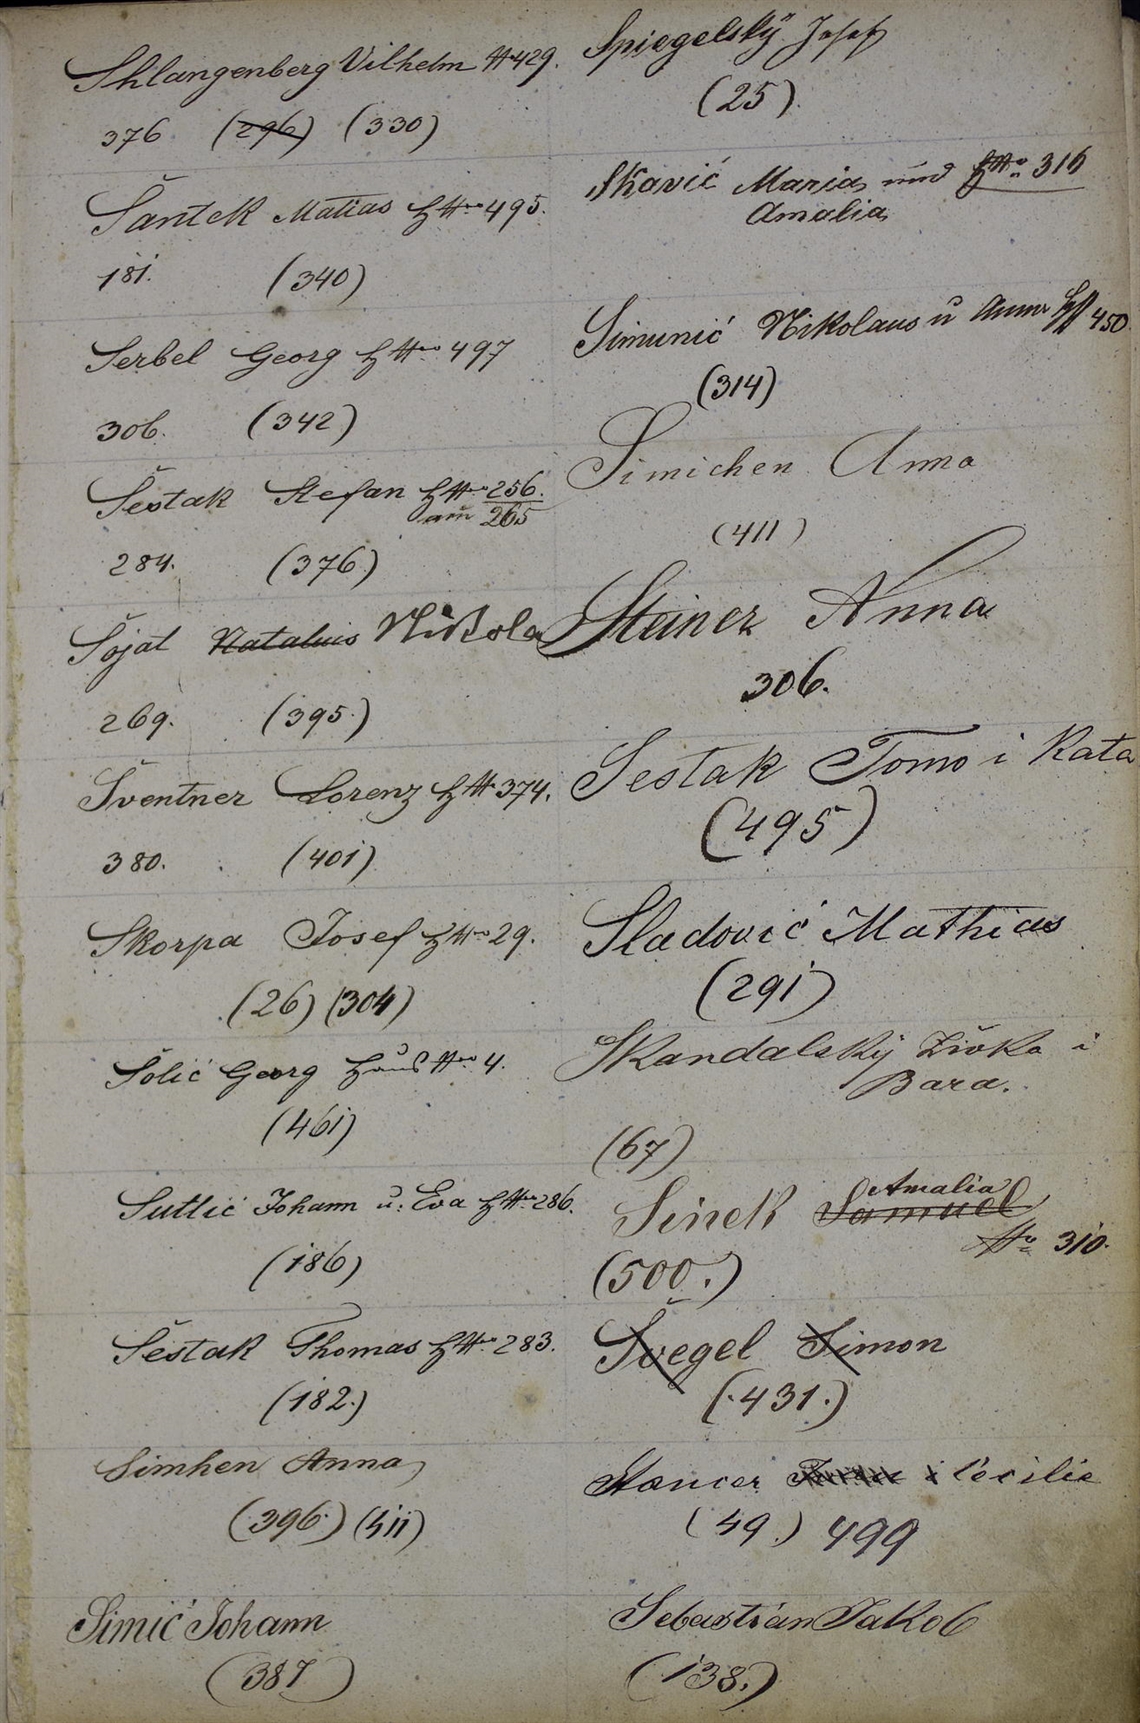 Shlangenberg Vilhelm № 429.
376 (296) (330)
Šantek Matias H № 495.
181. (340)
Serbel Georg H № 497
306. (342)
Šestak Stefan H № 256.
265
284. (376)
Šojat Natalius Nikola
269. (395.)
Šventner Lorenz H № 374.
380. (401)
Skorpa Josef H № 29.
(26) (304)
Šolić Georg Haus № 4.
(461)
Sutlić Johann u. Eva H № 286.
(186)
Šestak Thomas H № 283.
(182.)
Simhen Anna
(396.) (411)
Simić Johann
(387)
Spiegelskÿ Josef
(25)
Skavić Maria und H № 316
Amalia
Simunić Nikolaus u Anna 450
(314)
Simichen Anna
(411)
Steiner Anna
306.
Sestak Tomo i Kata
(495)
Sladović Mathias
(291)
Skandalskÿ Živko i
Bara.
(67)
Amalia
Sinek Samuel
№ 310.
(500.)
Švegel Simon
(431.)
Stancer i Cecilie
(49.) 499
Sebastian Jakob
(138.)